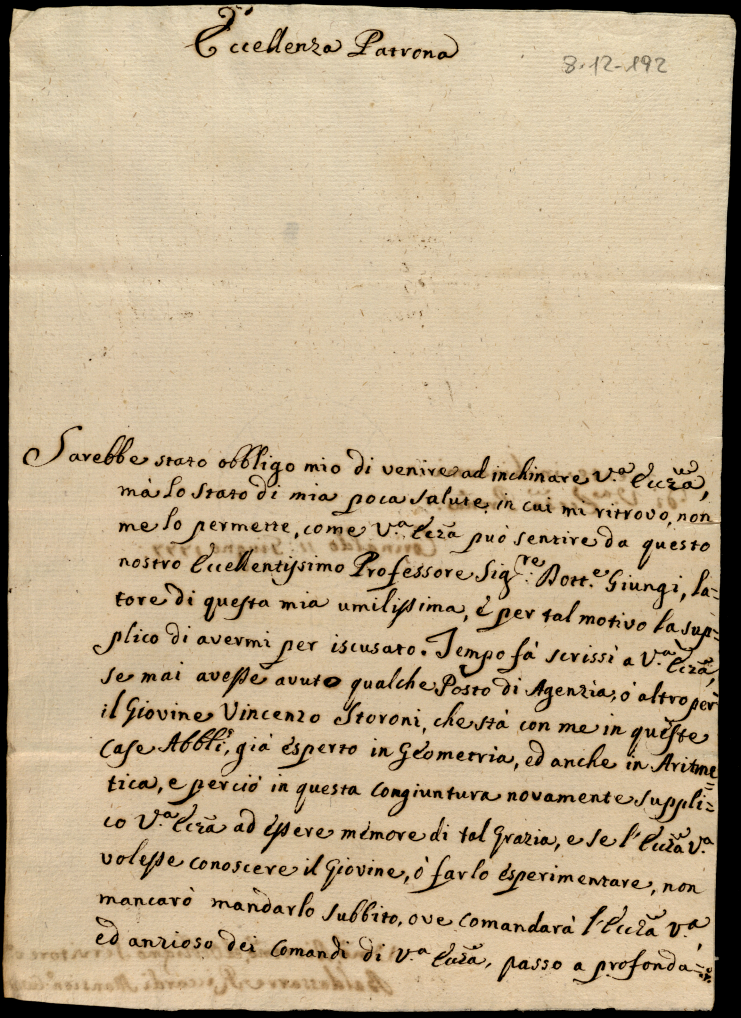 Eccellenza Patrona
8.12-192
Sarebbe stato obbligo mio di venire ad inchinare V.ª Eccza,
mà lo stato di mia poca salute, in cui mi ritrovo, non
me lo permette, come V.ª Ecza può sentire da questo
nostro Eccellentissimo Professore Sig.re Dott.e Giungi, la=
tore di questa mia umilissima, e per tal motivo la sup=
plico di avermi per iscusato. Tempo fà scrissi a V.ª Ecza,
se mai avesse avuto qualche Posto di Agenzia, ó altro per
il Giovine Vincenzo Storoni, che stà con me in queste
Case Abb.li, già esperto in Geometria, ed anche in Aritme=
tica, e perciò in questa congiuntura novamente suppli=
co V.ª Ecza ad essere memore di tal Grazia, e se l'Eccza V.ª
volesse conoscere il Giovine, ó farlo esperimentare, non
mancarò mandarlo subbito, ove comandarà l'Eccza V.ª,
ed anzioso dei comandi di V.ª Eccza, passo a profonda=